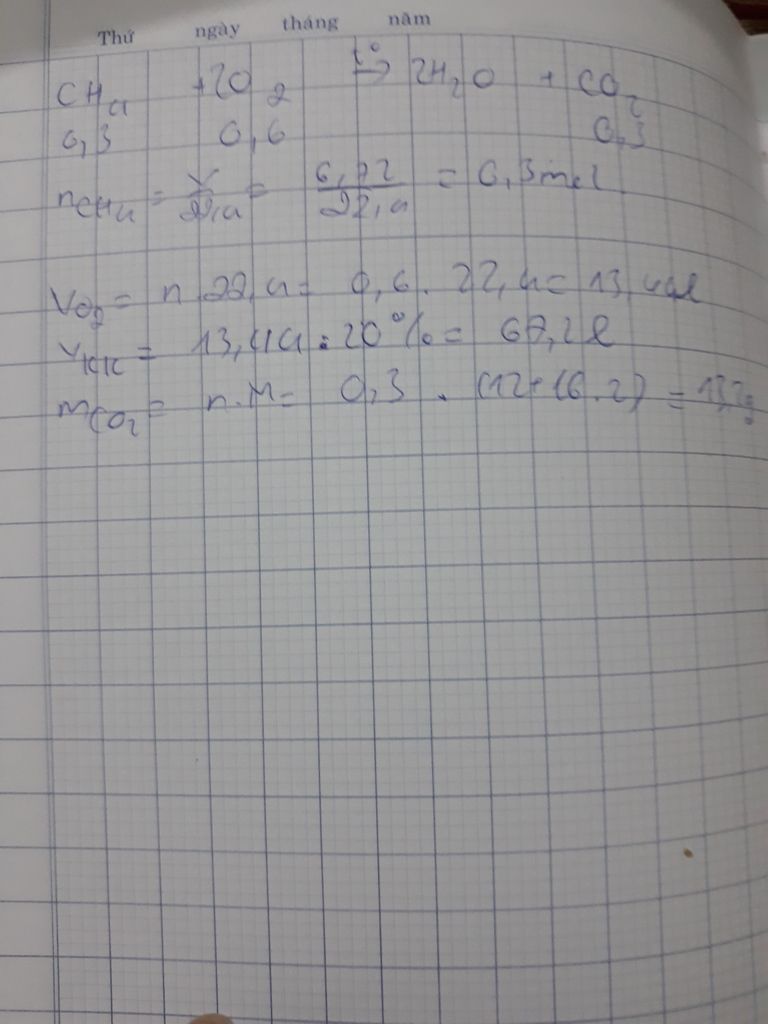 Thứ ngày tháng năm
CH4 + 2O2 t° → 2H2O + CO2
0,3 0,6 0,3
nCH4 = V/22,4 = 6,72/22,4 = 0,3 mol
VO2 = n.22,4 = 0,6. 22,4 = 13,44l
VKK = 13,44 : 20% = 67,2l
mCO2 = n.M = 0,3 . (12+16.2) = 13,2g